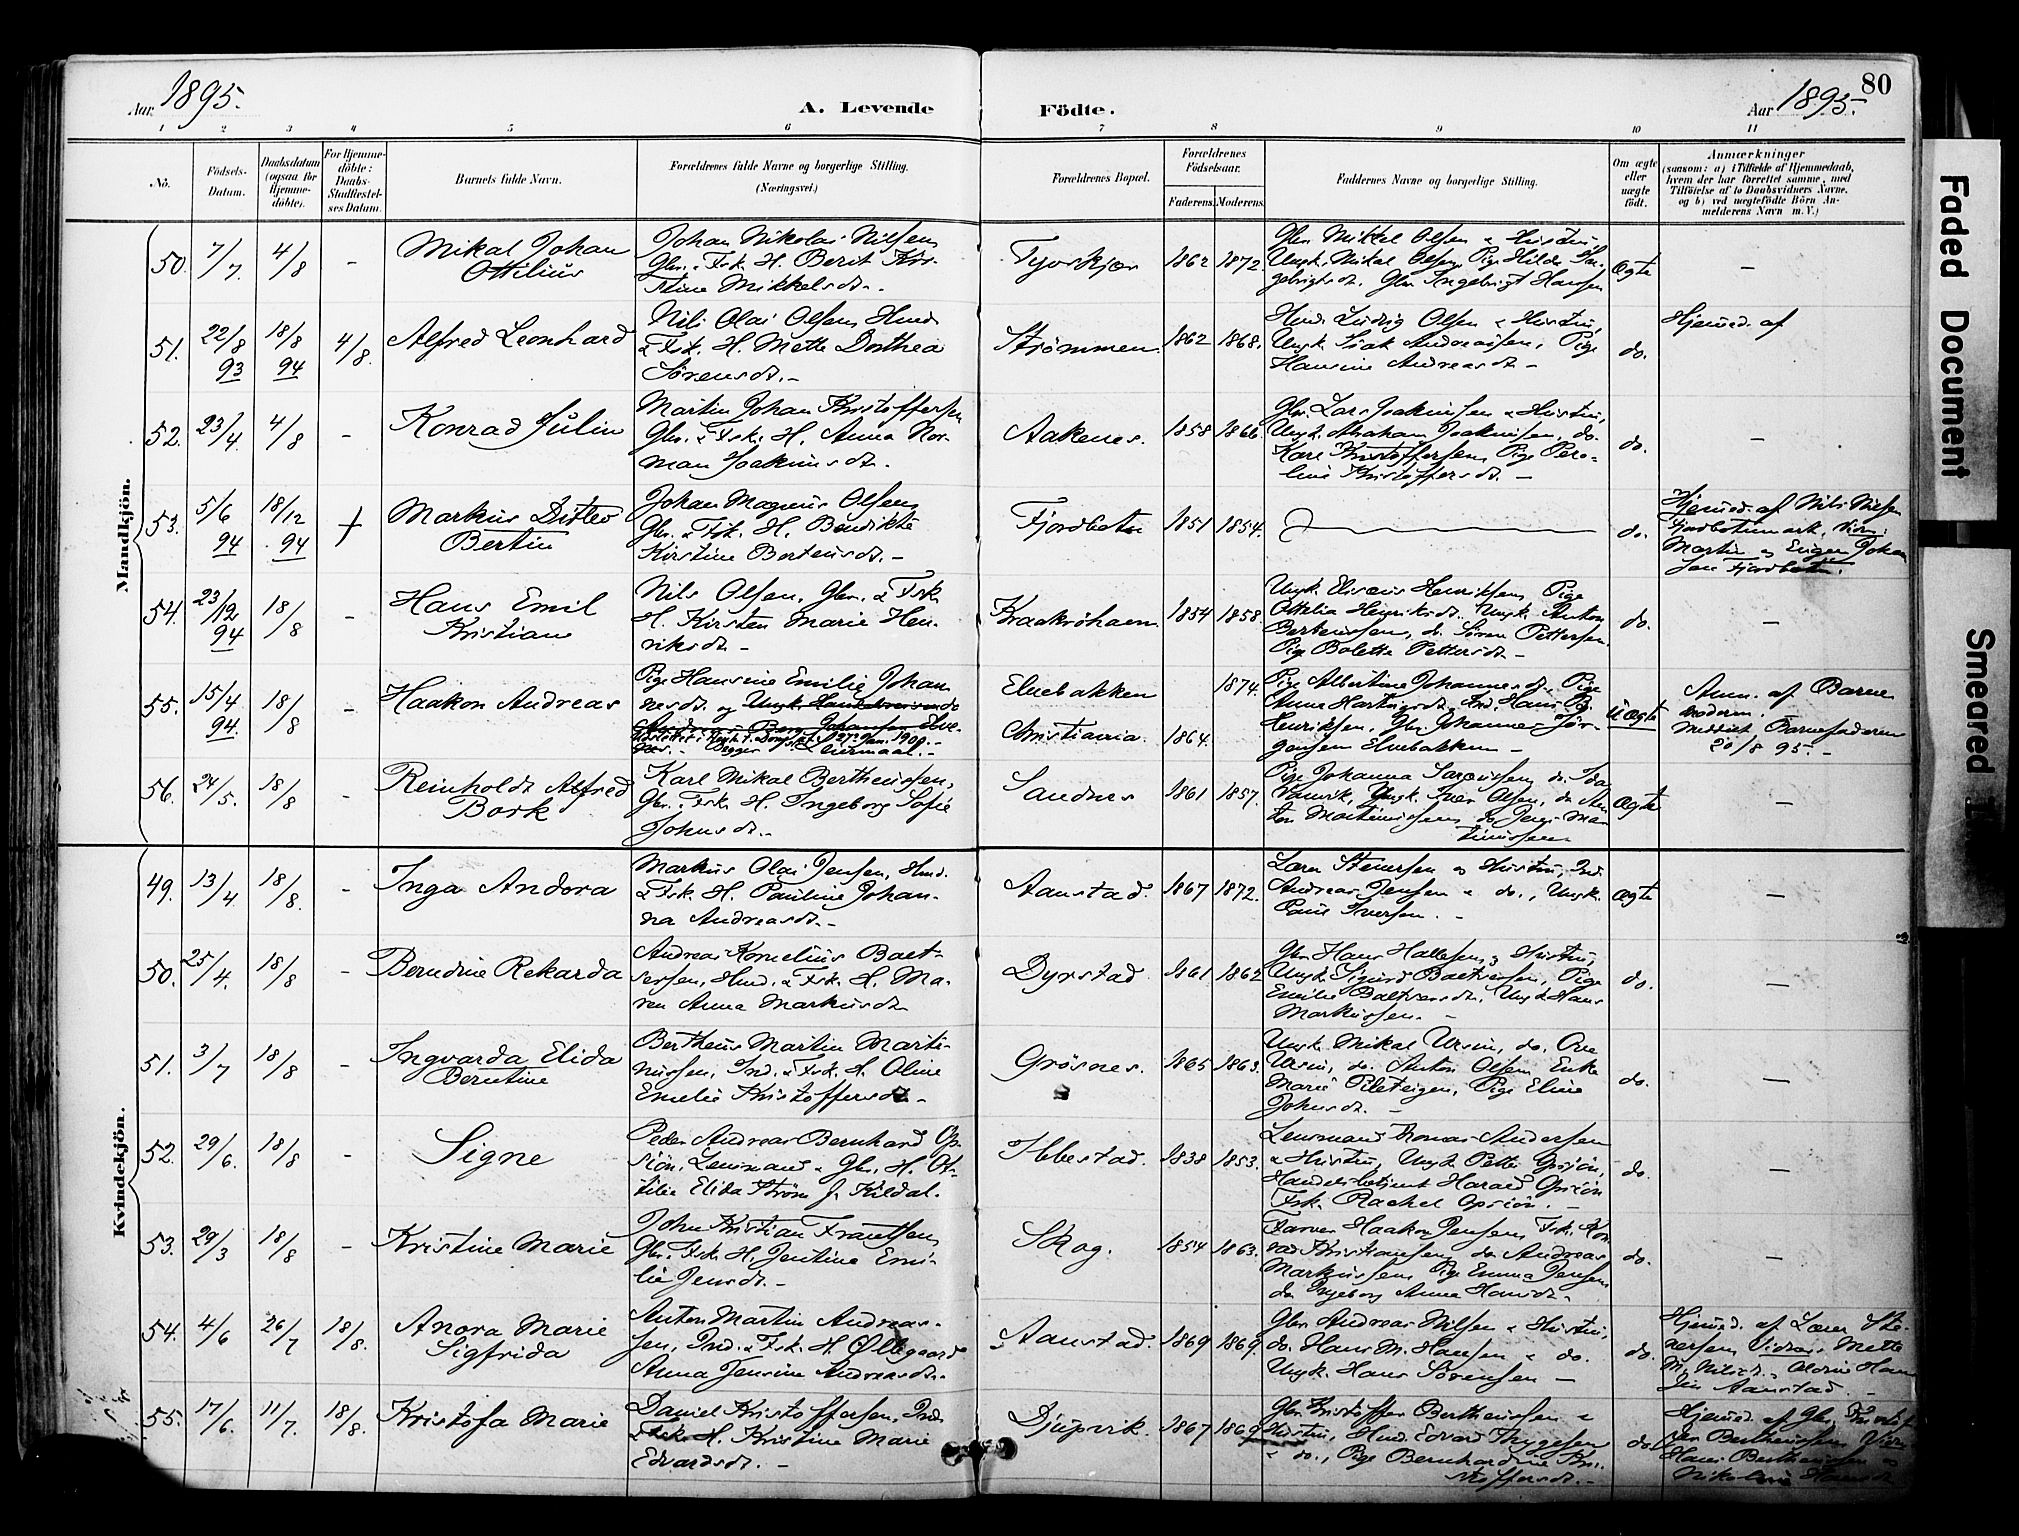 Aar 1895.
A. Levende
Födte.
Aar 1895.
80
1 2 3 4 5 6 7 8 9 10 11
No.
Födsels-Datum.
Daabsdatum (ogsaa for Hjemme-döbte).
For Hjemme-döbte: Daabs-Stadfæstel-ses Datum.
Barnets fulde Navn.
Forældrenes fulde Navne og borgerlige Stilling. (Næringsvei.)
Forældrenes Bopæl.
Forældrenes Födselsaar.
Faderens. Moderens.
Faddernes Navne og borgerlige Stilling.
Om ægte eller uægte födt.
Anmærkninger
(saasom: a) i Tilfælde af Hjemmedaab, hvem der har forrettet samme, med Tilföielse af to Daabsvidners Navne, og b) ved uægtefödte Börn An-melderens Navn m. V.)
Mandkjön.
50. 7/7 4/8 - Mikal Johan Ottilius
Johan Nikolai Nilsen, Gbr. & Fsk. H. Berit Kirstine Mikkelsdt. -
1862 1872.
Gbr. Mikkel Olsen & Hustru, Ungk. Mikal Olsen, Pige Hilda Ingebrigtsdt. Gbr. Ingebrigt Hansen
Ægte -
51. 22/8 93 18/8 94 4/8. Alfred Leonhard
Nils Olai Olsen, Hmd. & Fsk. H. Mette Dorthea Sörensdt. -
Strömmen. 1862 1868.
Hmd. Ludvig Olsen & Hustru, Ungk. Isak Andreassen, Pige Hansine Andreasdt -
do. Hjemd. af
52. 23/4. 4/8 - Konrad Julin
Martin Johan Kristoffersen Gbr. & Fsk. H. Anna Norman Joakimsdt.
Aakenes. 1858 1866.
Gbr. Lars Joakimsen & Hustru, Ungk. Abraham Joakimsen, do. Karl Kristoffersen, Pige Peroline Kristoffersdt. -
do. -
53. 5/6 94 18/12 94 + Markus Ditlev Bertin
Johan Magnus Olsen, Gbr. & Fsk. H. Bendikte Kirstine Bertensdt. -
Fjordbotn 1851 1854.
do. Hjemmd. af Nils Nilsen Fjordbotnmark, Vidn: Martin og Eugen Johansen Fjordbotn.
54. 23/12 94 18/8 - Hans Emil Kristian
Nils Olsen, Gbr. & Fsk. H. Kirsten Marie Henriksdt. -
Kraakröhavn. 1854 1858.
Ungk. Elisæus Henriksen, Pige Ottelia Henriksdt. Ungk. Anton Berteussen, do. Sören Pettersen Pige Bolette Pettersdt -
do. -
55. 15/4 94. 18/8 - Haakon Andreas
Pige Hansine Emilie Johannesdt. og
Elvebakken 1874.
Christiania. 1864.
Pige Albertine Johannesdt., Pige Anna Hartvigsdt. Ind. Hans B. Henriksen, Gbr. Johannes Jörgensen Elvebakken -
Uægte Anm. af Barnemoderen. Meddelt Barnefaderen 20/8 95. -
56. 24/5. 18/8 - Reinholdt Alfred Bork
Karl Mikal Bertheussen, Gbr. & Fsk. H. Ingeborg Sofie Johnsdt. -
Sandnes 1861 1857.
Pige Johanna do. Ida Ungk. Iver Olsen, do. Anton Martinussen do. Jens Martinussen
Ægte -
Kvindekjön.
49. 13/4 18/8. - Inga Andora
Markus Olai Jensen, Hmd. & Fsk. H. Pauline Johanna Andreasdt. -
Aanstad. 1867 1872.
Lærer Stenersen og Hustru, Ind. Andreas Jensen & do., Ungk. Paul Iversen. -
Ægte -
50. 25/4. 18/8 - Berndine Rekarda
Andreas Kornelius Baltsersen, Hmd. & Fsk. H. Maren Anna Markusdt.
Dyrstad. 1861 1862
Gbr. Hans Hallesen & Hustru, Ungk. Sigurd Baltsersen, Pige Emilie Baltsersdt., Ungk. Hans Markussen. -
do. -
51. 3/7 18/8 - Ingvarda Elida Berntine
Bertheus Martin Martinussen, Ind. & Fsk. H. Oline Emelie Kristoffersdt. -
Grösnes. 1865 1863.
Ungk. Mikal Ursin, do. Ove Ursin, do. Anton Olsen, Enke Marie Pige Eline Johnsdt. -
do. -
52. 29/6. 18/8 - Signe
Peder Andreas Bernhard Opsiön, Lensmand & Gbr. H. Ottilie Elida Ström f. Kildal.
Ibbestad. 1838 1853.
Lensmand Thomas Andersen & Hustru, Ungk. Petter Opsiön, Handelsbetjent Harald Opsiön Frk. Rachel Opsiön. -
do. -
53. 29/3 18/8 - Kristine Marie
John Kristian Frantsen, Gbr. & Fsk. H. Jentine Emilie Jensdt. -
Skog. 1854 1863.
Farver Haakon Jensen, Fsk. Konrad Kristiansen, do. Andreas Markussen, Pige Emma Jensen do. Ingeborg Anna Hansdt. -
do. -
54. 4/6 26/7 18/8. Anora Marie Sigfrida
Anton Martin Andreassen, Ind. & Fsk. H. Öllegaard Anna Jensine Andreasdt. -
Aanstad. 1869 1869.
Gbr. Andreas Nilsen & Hustru, do. Hans M. Hansen & do. Ungk. Hans Sörensen -
do. Hjemd. af Lærer Stenersen, Vidner: Mette M. Nilsdt., Aldrine Hansen Aanstad. -
55. 17/6. 11/7. 18/8. Kristofa Marie
Daniel Kristoffersen, Ind. & Fsk. H. Kristine Marie Edvardsdt. -
Djupvik. 1867 1869
Gbr. Kristoffer Bertheussen & Hustru, Hmd. Edvard Thygesen & do., Pige Bernhardine Kristoffersdt. -
do. Hjemd. af Gbr. Kristoffer Bertheussen, Vidn: Hans Bertheussen og Nikoline Hansdt.
Faded Document
Smeared